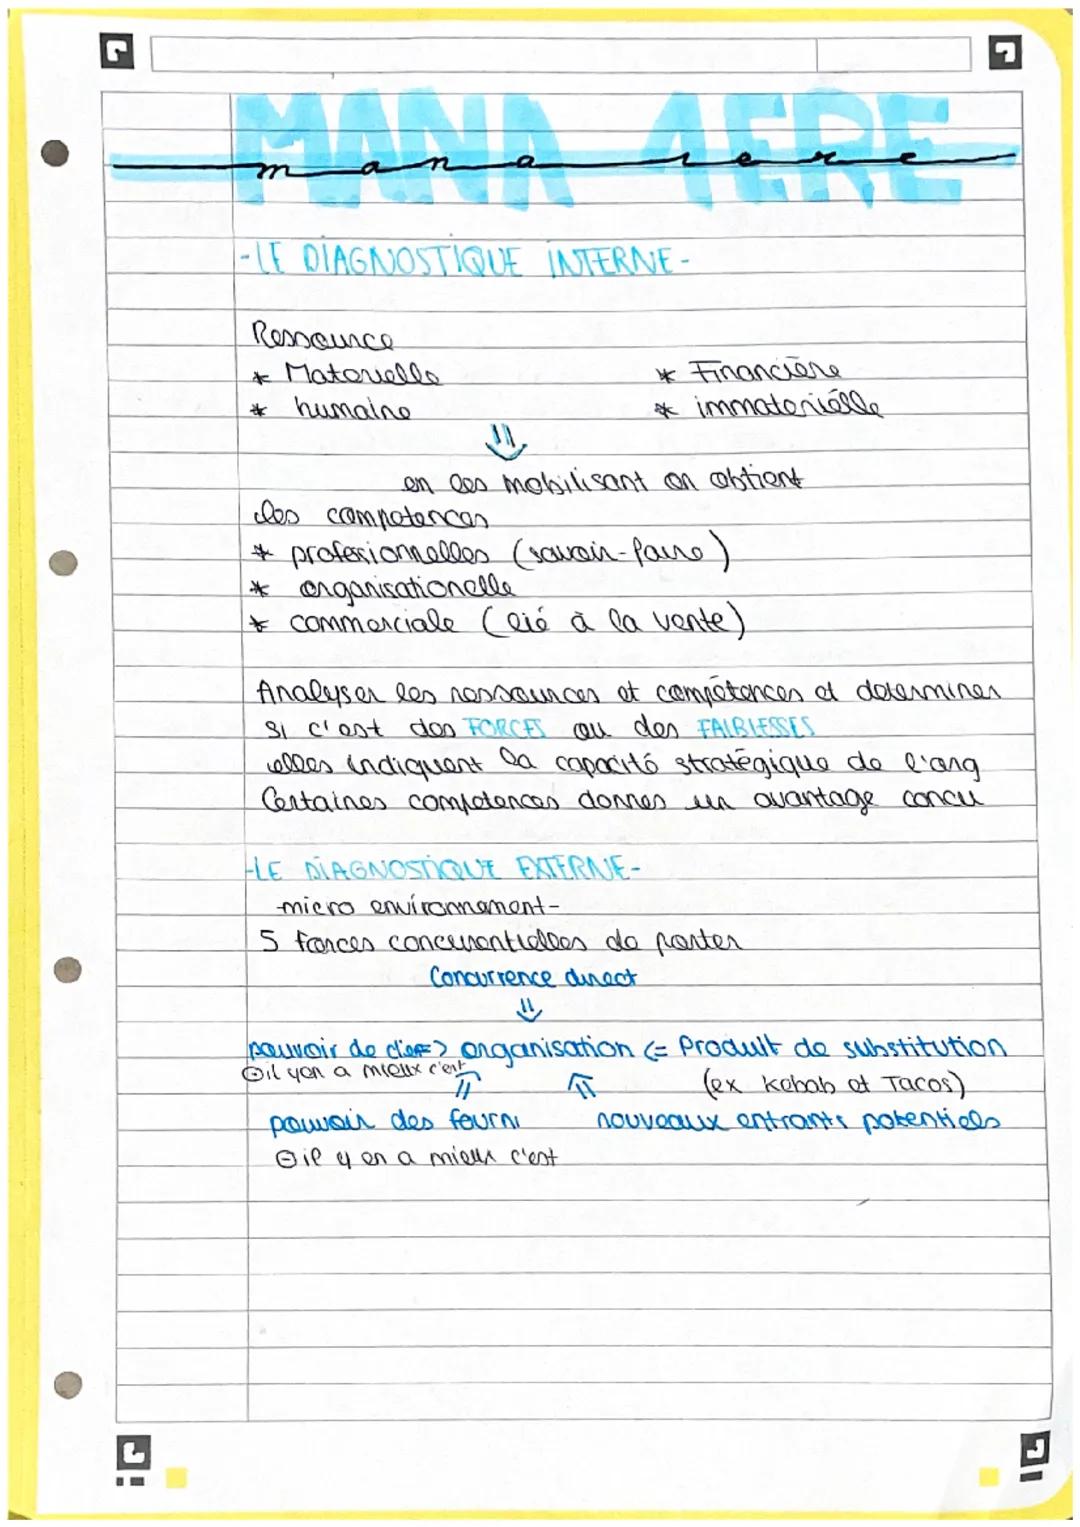 MANA 1ERE
mana 1ere
-LE DIAGNOSTIQUE INTERNE-
Ressource
* Materielle * Financière
* humaine * immateriélle
en les mobilisant on obtient
des competences
* profesionnelles (savoir-faire)
* organisationelle
* commerciale (lié à la vente)
Analyser les ressources et compétences et determiner
si c'est des FORCES ou des FAIBLESSES
elles indiquent la capacité stratégique de l'org
Certaines competences donnes un avantage concu
-LE DIAGNOSTIQUE EXTERNE-
-micro environnement-
5 forces concurentielles de porter
Concurrence direct
⇓
pouvoir de clie => organisation <= Produit de substitution
⊕il yen a mieux c'est (ex kebab et Tacos)
pouvoir des fourni nouveaux entrants potentiels
⊖il y en a mieux c'est